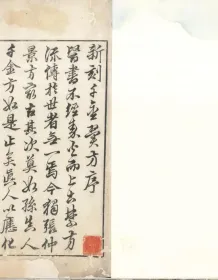 新刻千金翼方序
醫書不經秦火而上古禁方
流傳於世者無一焉今獨張仲
景方最古其次莫如孫真人
千金方如是止矣真人以應化